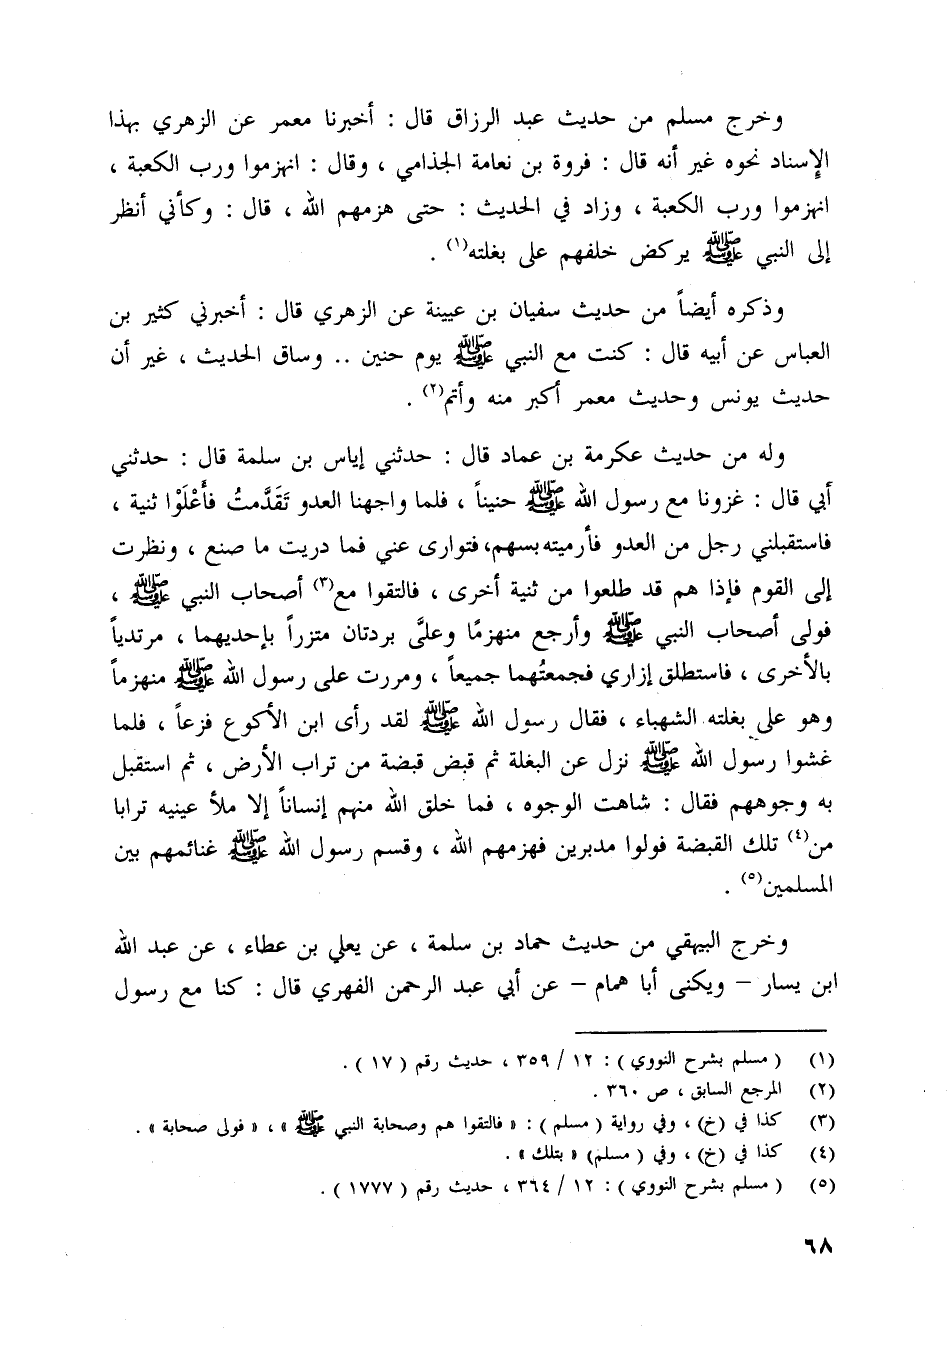 وخرج مسلم من حديث عبد الرزاق قال : أخبرنا معمر عن الزهري بهذا
الإسناد نحوه غير أنه قال : فروة بن نعامة الجذامي ، وقال : انهزموا ورب الكعبة ،
انهزموا ورب الكعبة ، وزاد في الحديث : حتى هزمهم الله ، قال : وكأني أنظر
إلى النبي ﷺ يركض خلفهم على بغلته(١) .
وذكره أيضاً من حديث سفيان بن عيينة عن الزهري قال : أخبرني كثير بن
العباس عن أبيه قال : كنت مع النبي ﷺ يوم حنين .. وساق الحديث ، غير أن
حديث يونس وحديث معمر أكبر منه وأتم(٢) .
وله من حديث عكرمة بن عماد قال : حدثني إياس بن سلمة قال : حدثني
أبي قال : غزونا مع رسول الله ﷺ حنيناً ، فلما واجهنا العدو تَقَدَّمتُ فأَعْلَوْا ثنية ،
فاستقبلني رجل من العدو فأرميته بسهم، فتوارى عني فما دريت ما صنع ، ونظرت
إلى القوم فإذا هم قد طلعوا من ثنية أخرى ، فالتقوا مع(٣) أصحاب النبي ﷺ ،
فولى أصحاب النبي ﷺ وأرجع منهزمًا وعلىَّ بردتان متزراً بإحديهما ، مرتدياً
بالأخرى ، فاستطلق إزاري فجمعتُهما جميعاً ، ومررت على رسول الله ﷺ منهزماً
وهو على بغلته الشهباء ، فقال رسول الله ﷺ لقد رأى ابن الأكوع فزعاً ، فلما
غشوا رسول الله ﷺ نزل عن البغلة ثم قبض قبضة من تراب الأرض ، ثم استقبل
به وجوههم فقال : شاهت الوجوه ، فما خلق الله منهم إنساناً إلا ملأ عينيه ترابا
من(٤) تلك القبضة فولوا مدبرين فهزمهم الله ، وقسم رسول الله ﷺ غنائمهم بين
المسلمين(٥) .
وخرج البيهقي من حديث حماد بن سلمة ، عن يعلي بن عطاء ، عن عبد الله
ابن يسار – ويكنى أبا همام – عن أبي عبد الرحمن الفهري قال : كنا مع رسول
(١) ( مسلم بشرح النووي ) : ١٢ / ٣٥٩ ، حديث رقم ( ١٧ ) .
(٢) المرجع السابق ، ص ٣٦٠ .
(٣) كذا في (خ) ، وفي رواية ( مسلم ) : « فالتقوا هم وصحابة النبي ﷺ » ، « فولى صحابة » .
(٤) كذا في (خ) ، وفي ( مسلم) « بتلك » .
(٥) ( مسلم بشرح النووي ) : ١٢ / ٣٦٤ ، حديث رقم ( ١٧٧٧ ) .
٦٨